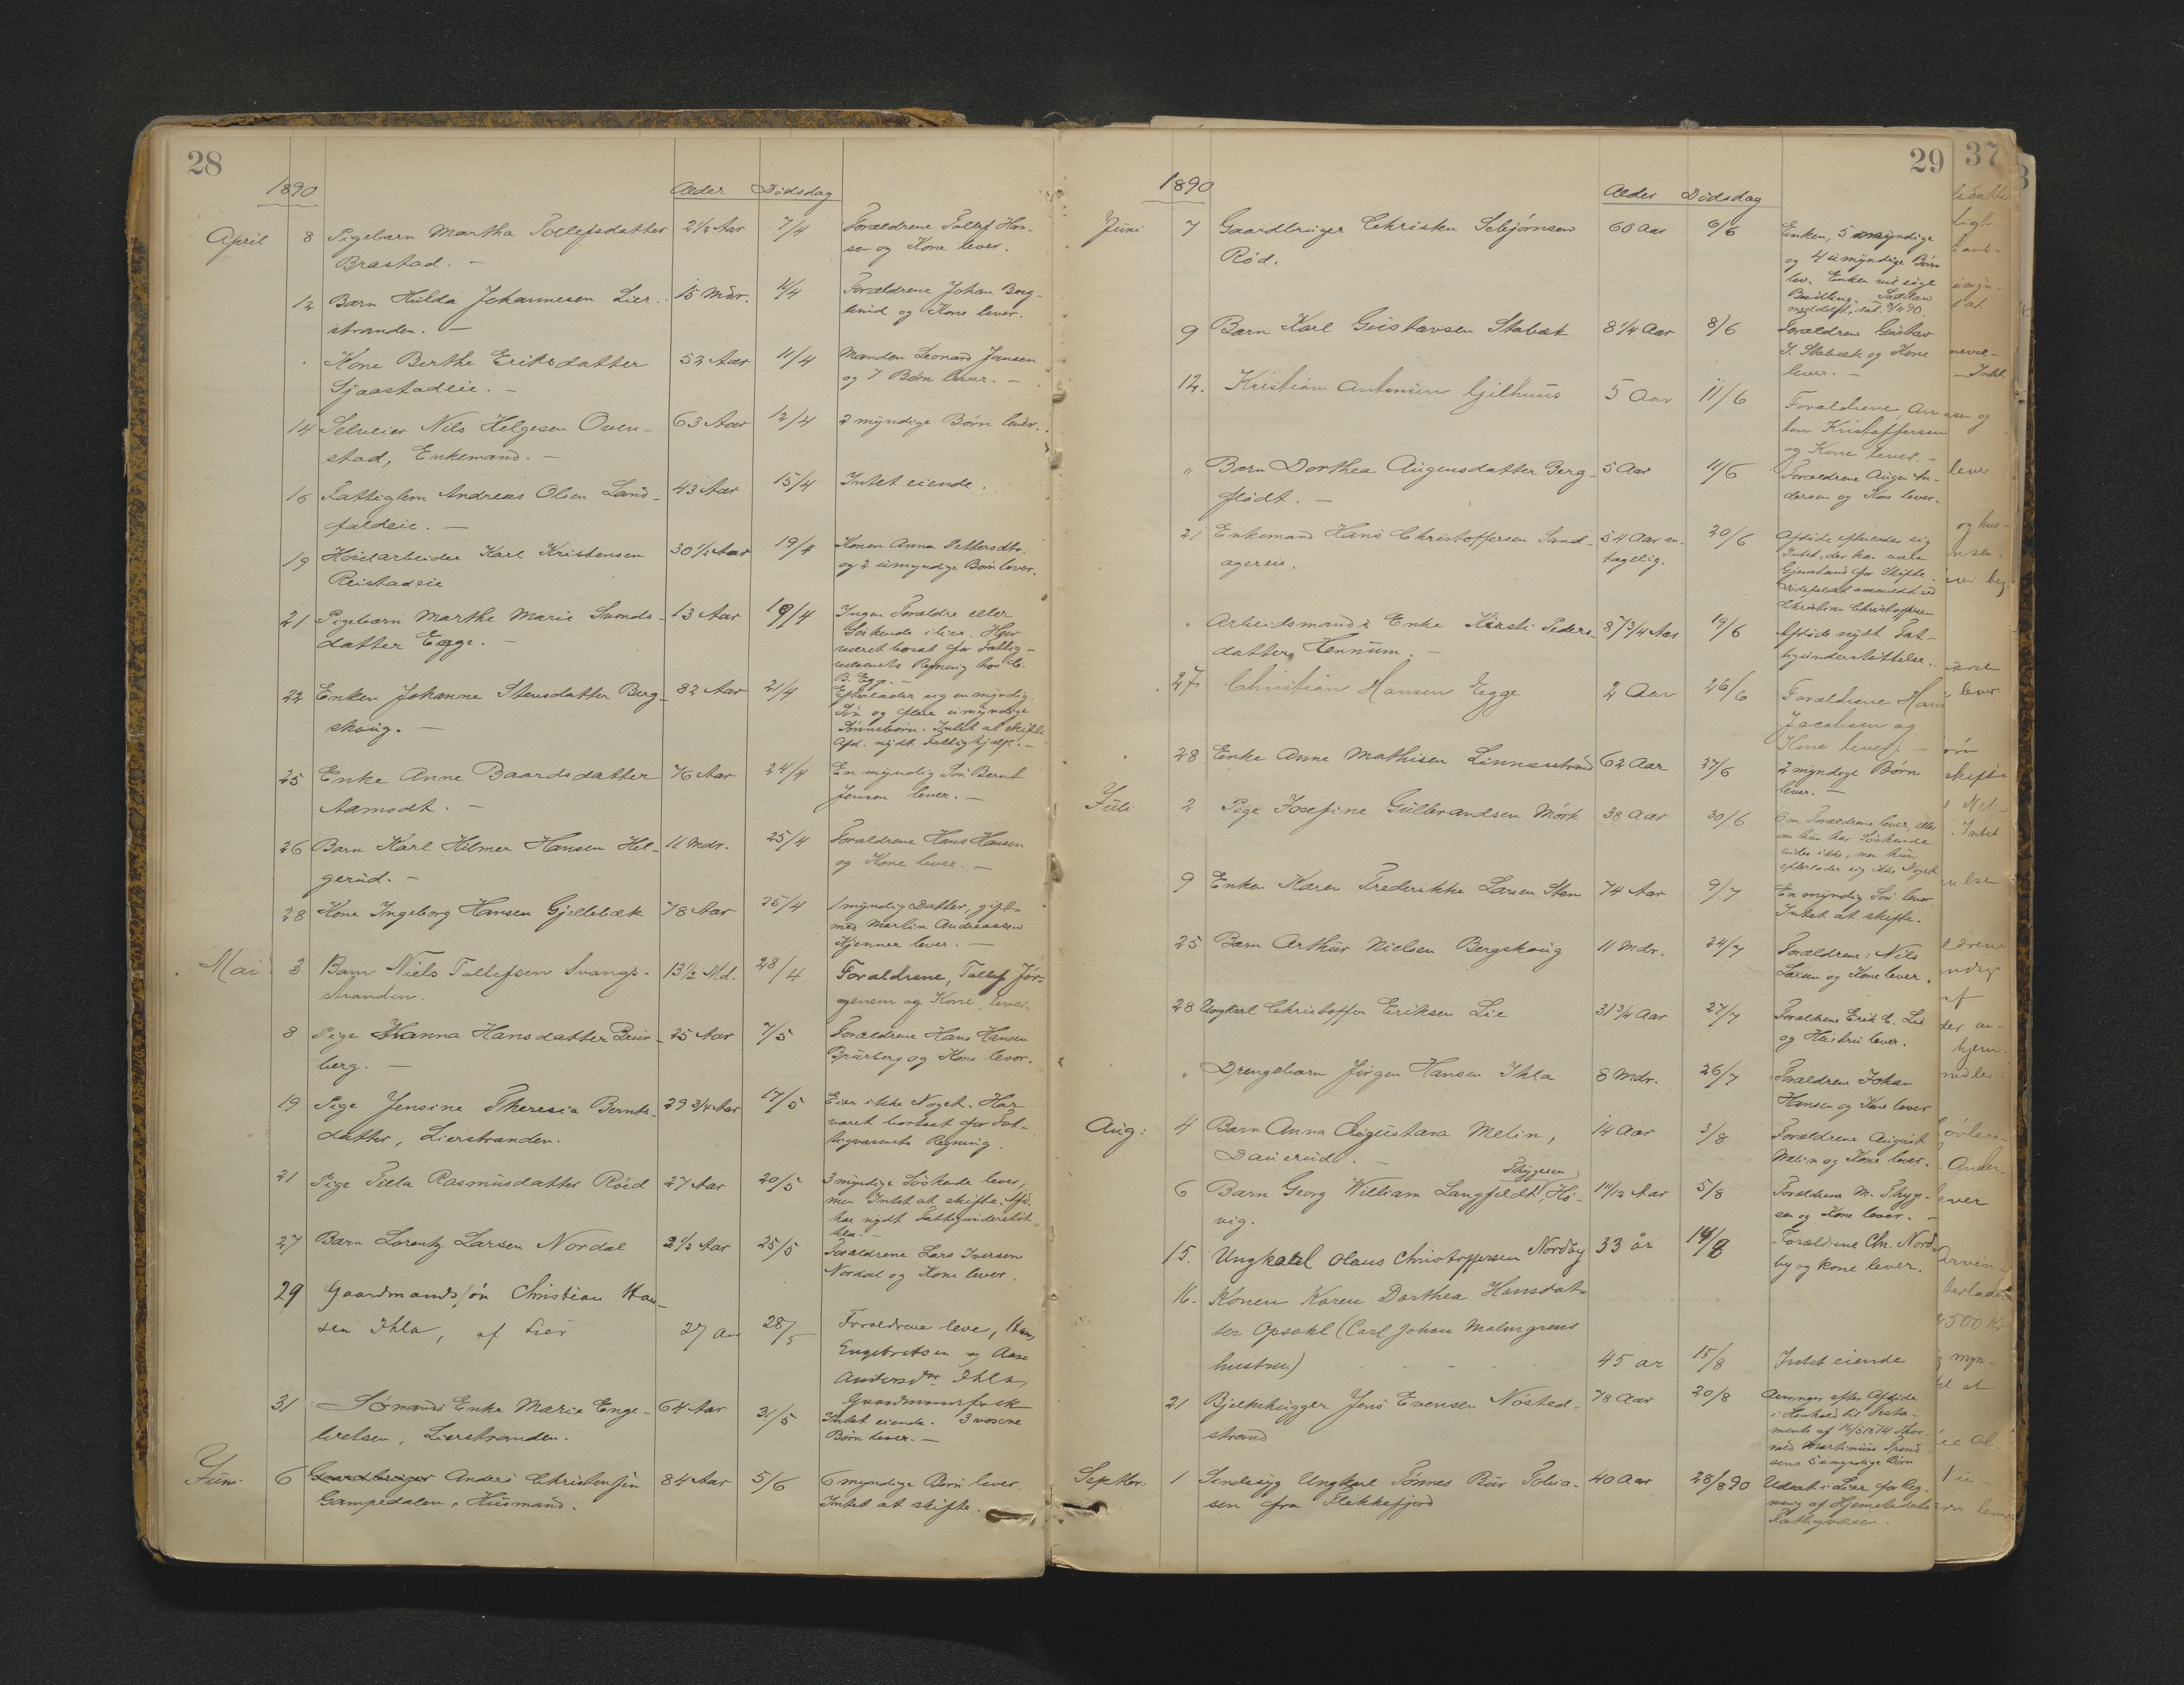 28
1890
Alder Dødsdag
April 8 Pigebarn Martha Tollefsdatter 2 1/2 Aar 7/4 Forældrene Tollef Han-
Brastad. - sen og Kone lever.
12 Barn Hulda Johannesen Lier- 15 Mdr. 11/4 Forældrene Johan Berg-
stranden. - og Kone lever.
Kone Berthe Eriksdatter 52 Aar 11/4 Manden Leonard Jansen
Sjaastadeie. - og 7 Børn lever. -
14 Selveier Nils Helgesen Oven- 63 Aar 12/4 2 myndige Børn lever.
stad, Enkemand. -
16 Fattiglem Andreas Olsen Land- 43 Aar 15/4 Intet eiende.
faldeie. -
19 Høvlarbeider Karl Kristensen 30 1/2 Aar 19/4 Konen Anna Pettersdtr.
Reistadeie og 2 umyndige Børn lever.
21 Pigebarn Marthe Marie Svends- 13 Aar 19/4 Ingen Forældre eller
datter Egge. - Søskende ilive. Har
været bosat for Fattig-
væsenets Regning hos
B. Egge. -
22 Enken Johanne Stensdatter Berg- 82 Aar 21/4 Efterlader sig en myndig
skoug. - Søn og flere umyndige
Sønnebørn. Intet at skifte
Afd. nydt Fattighjælp. -
25 Enke Anne Baardsdatter 76 Aar 24/4 En myndig Søn Bernt
Aamodt. - Jensen lever. -
26 Barn Karl Hilmer Hansen Hel- 11 Mdr. 25/4 Forældrene Hans Hansen
gerud. - og Kone lever. -
28 Kone Ingeborg Hansen Gjellebæk 78 Aar 25/4 1 myndig Datter, gift
med Martin Andreassen
Kjenner lever. -
Mai 3 Barn Niels Tollefsen Svangs- 13 1/2 Md. 28/4 Forældrene, Tollef Jør-
stranden. gensen og Kone, lever.
8 Pige Hanna Hansdatter Brur- 25 Aar 7/5 Forældrene Hans Hansen
berg. - Brurberg og Kone lever.
19 Pige Jensine Theresia Bernts- 29 3/4 Aar 17/5 Eier ikke Noget. Har
datter, Lierstranden. været bortsat for Fat-
tigvæsenets Regning.
21 Pige Tilla Rasmusdatter Røed 27 Aar 20/5 3 myndige Søskende lever,
men Intet at skifte. Afd.
har nydt Fattigunderstøt-
telse. -
27 Barn Lorentz Larsen Nordal 2 1/2 Aar 25/5 Forældrene Lars Iversen
Nordal og Kone lever.
29 Gaardmandssøn Christian Han-
sen Ihla, af Lier 27 Aar 28/5 Forældrene leve, Hans
Engebretsen og Aase
Andersdtr Ihla,
Gaardmandsfolk
31 Sømands Enke Marie Enge- 64 Aar 31/5 Intet eiende. 3 voxne
bretsen, Lierstranden. Børn lever. -
Juni 6 Gaardbruger Anders Christensen 84 Aar 5/6 6 myndige Børn lever.
Gampedalen, Husmand. Intet at skifte.
29
37
1890
Alder Dødsdag
Juni 7 Gaardbruger Christen Sebjørnsen 60 Aar 6/6 Enken, 5 myndige
Rød. og 4 umyndige Børn
lev. Enken vil søge
Bevilling.
9 Barn Karl Gustavsen Stabæk 8 1/4 Aar 8/6 Forældrene Gustav
J. Stabæk og Kone
lever. -
12. Kristian Antonsen Gilhuus 5 Aar 11/6 Forældrene An-
ton Kristoffersen
og Kone lever. -
" Barn Dorthea Augensdatter Berg- 5 Aar 11/6 Forældrene Augen An-
flødt. - dersen og Kone lever.
21 Enkemand Hans Christoffersen Sand- 54 Aar an- 20/6 Afdøde efterlader sig
agereie. tagelig. Intet, der kan være
Gjenstand for Skifte.
Dødsfaldet anmeldt ved
Christian Christoffersen
" Arbeidsmands Enke Kirsti Peders- 87 3/4 Aar 19/6 Afdøde nydt Fat-
datter Hennum. - tigunderstøttelse.
27 Christian Hansen Egge 2 Aar 26/6 Forældrene Hans
Jacobsen og
Kone lever. -
28 Enke Anne Mathisen Linnesstrand 62 Aar 27/6 2 myndige Børn
lever. -
Juli 2 Pige Josefine Gulbrandsen Mørk 38 Aar 30/6 Om Forældrene lever, eller
om hun har Søskende
vides ikke, men hun
efterlader sig ikke Noget
9 Enken Karen Frederikke Larsen Sten 74 Aar 9/7 En myndig Søn lever.
Intet at skifte.
25 Barn Arthur Nielsen Bergskoug 11 Mdr. 24/7 Forældrene: Nils
Larsen og Kone lever.
28 Ungkarl Christoffer Eriksen Lie 31 3/4 Aar 27/7 Forældrene Erik C. Lie
og Hustru lever.
" Drengebarn Jørgen Hansen Ihla 8 Mdr. 26/7 Forældrene Johan
Hansen og Kone lever
Aug: 4 Barn Anna Augustava Melin, 14 Aar 3/8 Forældrene August
Dauerud. - Melin og Kone lever.
Thygesen
6 Barn Georg William Langfeldt, Hø- 1 4/12 Aar 5/8 Forældrene M. Thyge-
vig. sen og Kone lever. -
15. Ungkarl Olaus Christoffersen Nordby 33 år 14/8 Forældrene Chr. Nord-
by og kone lever.
16. Konen Karen Dorthea Hansdat-
ter Opsahl (Carl Johan Malmgrens
hustru) 45 ar 15/8 Intet eiende
21 Bjelkehugger Jens Evensen Nøsted- 78 Aar 20/8 Arvinger efter Afdøde
strand i Henhold til Testa-
mente af 16/5 1874
Martinius
sens 5 umyndige Børn
Septbr. 1 Sindssyg Ungkarl Tønnes Bur Tobia- 40 Aar 28/8 90 Udsat i Lier for Reg-
sen fra Flekkefjord ning af Hjemstedets
Fattigvæsen.